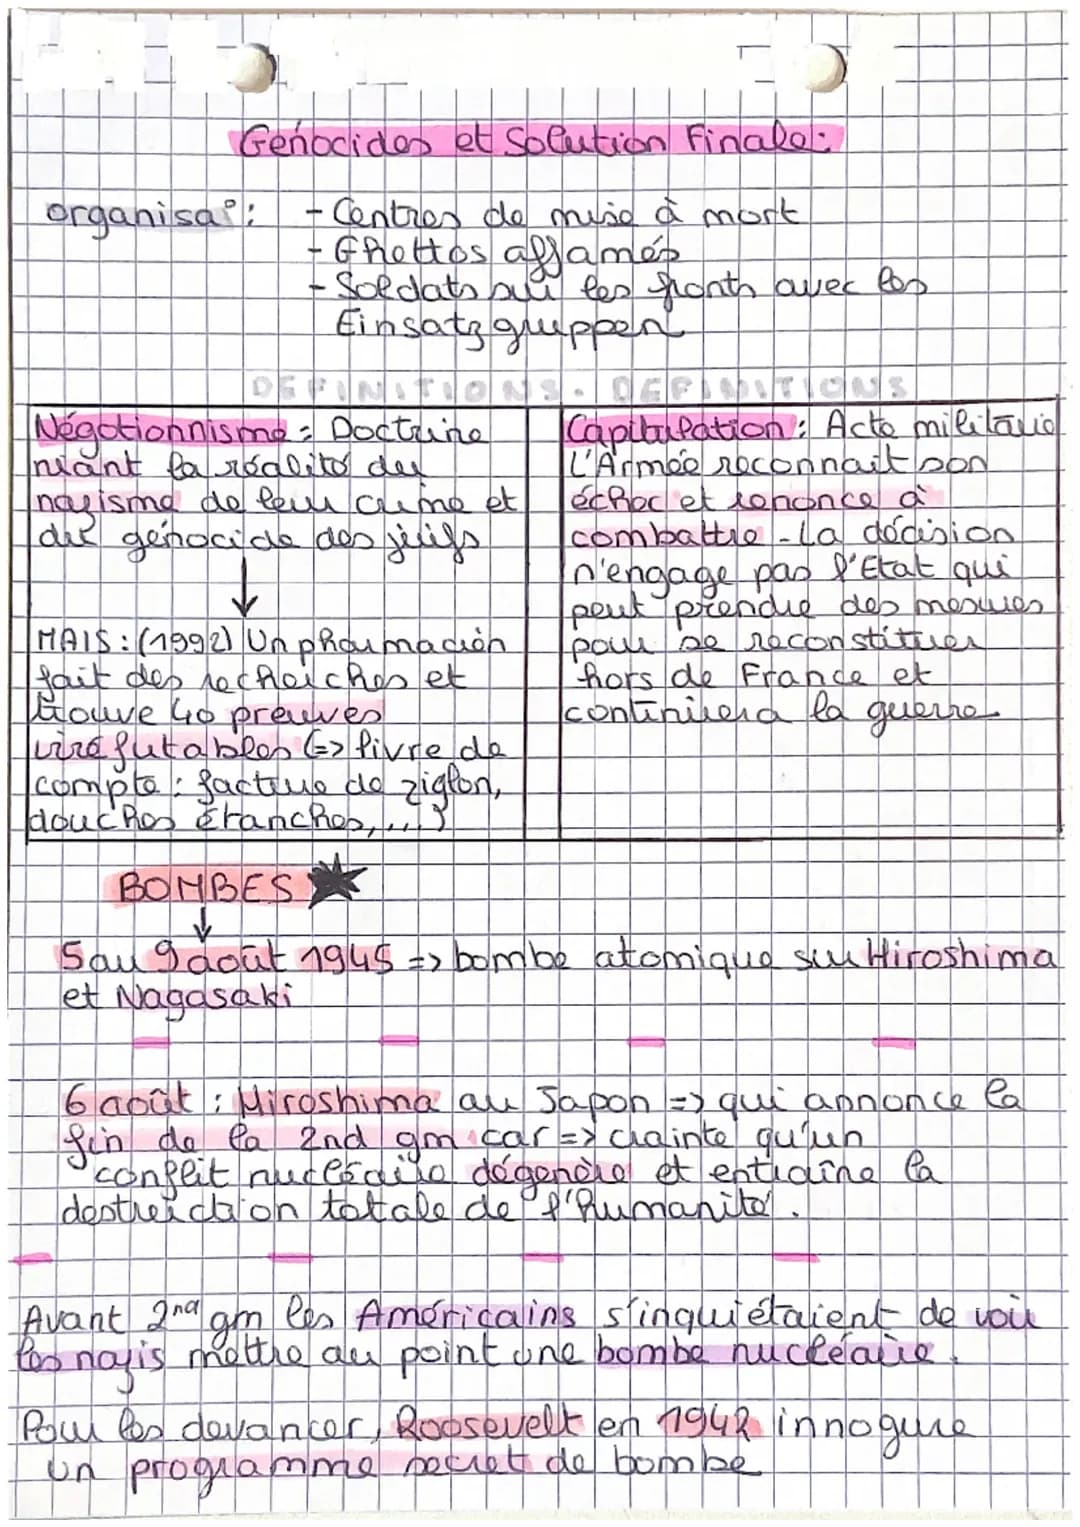 Génocides et Solution Finale:
organisa°: - Centres de mise à mort
- Ghettos affamés
- Soldats sur les fronts avec les
Einsatzgruppen
DEFINITIONS. DEFINITIONS
Négotionnisme : Doctrine
niant la réalité du
nazisme de leur crime et
du génocide des juifs
MAIS : (1992) Un pharmacien
fait des recherches et
trouve 40 preuves
irréfutables (=> livre de
compte : facture de ziglon,
douches étanches,...)
Capitulation : Acte militaire
L'Armée reconnait son
échec et renonce à
combattre - La décision
n'engage pas l'Etat qui
peut prendre des mesures
pour se reconstituer
hors de France et
continuera la guerre
BOMBES
5 au 9 août 1945 => bombe atomique sur Hiroshima
et Nagasaki
6 août : Hiroshima au Japon => qui annonce la
fin de la 2nd gm car => crainte qu'un
conflit nucléaire dégenère et entraîne la
destruction totale de l'Humanité.
Avant 2nd gm les Américains s'inquiétaient de voir
les nazis mettre au point une bombe nucléaire.
Pour les devancer, Roosevelt en 1942 innogure
un programme secret de bombe